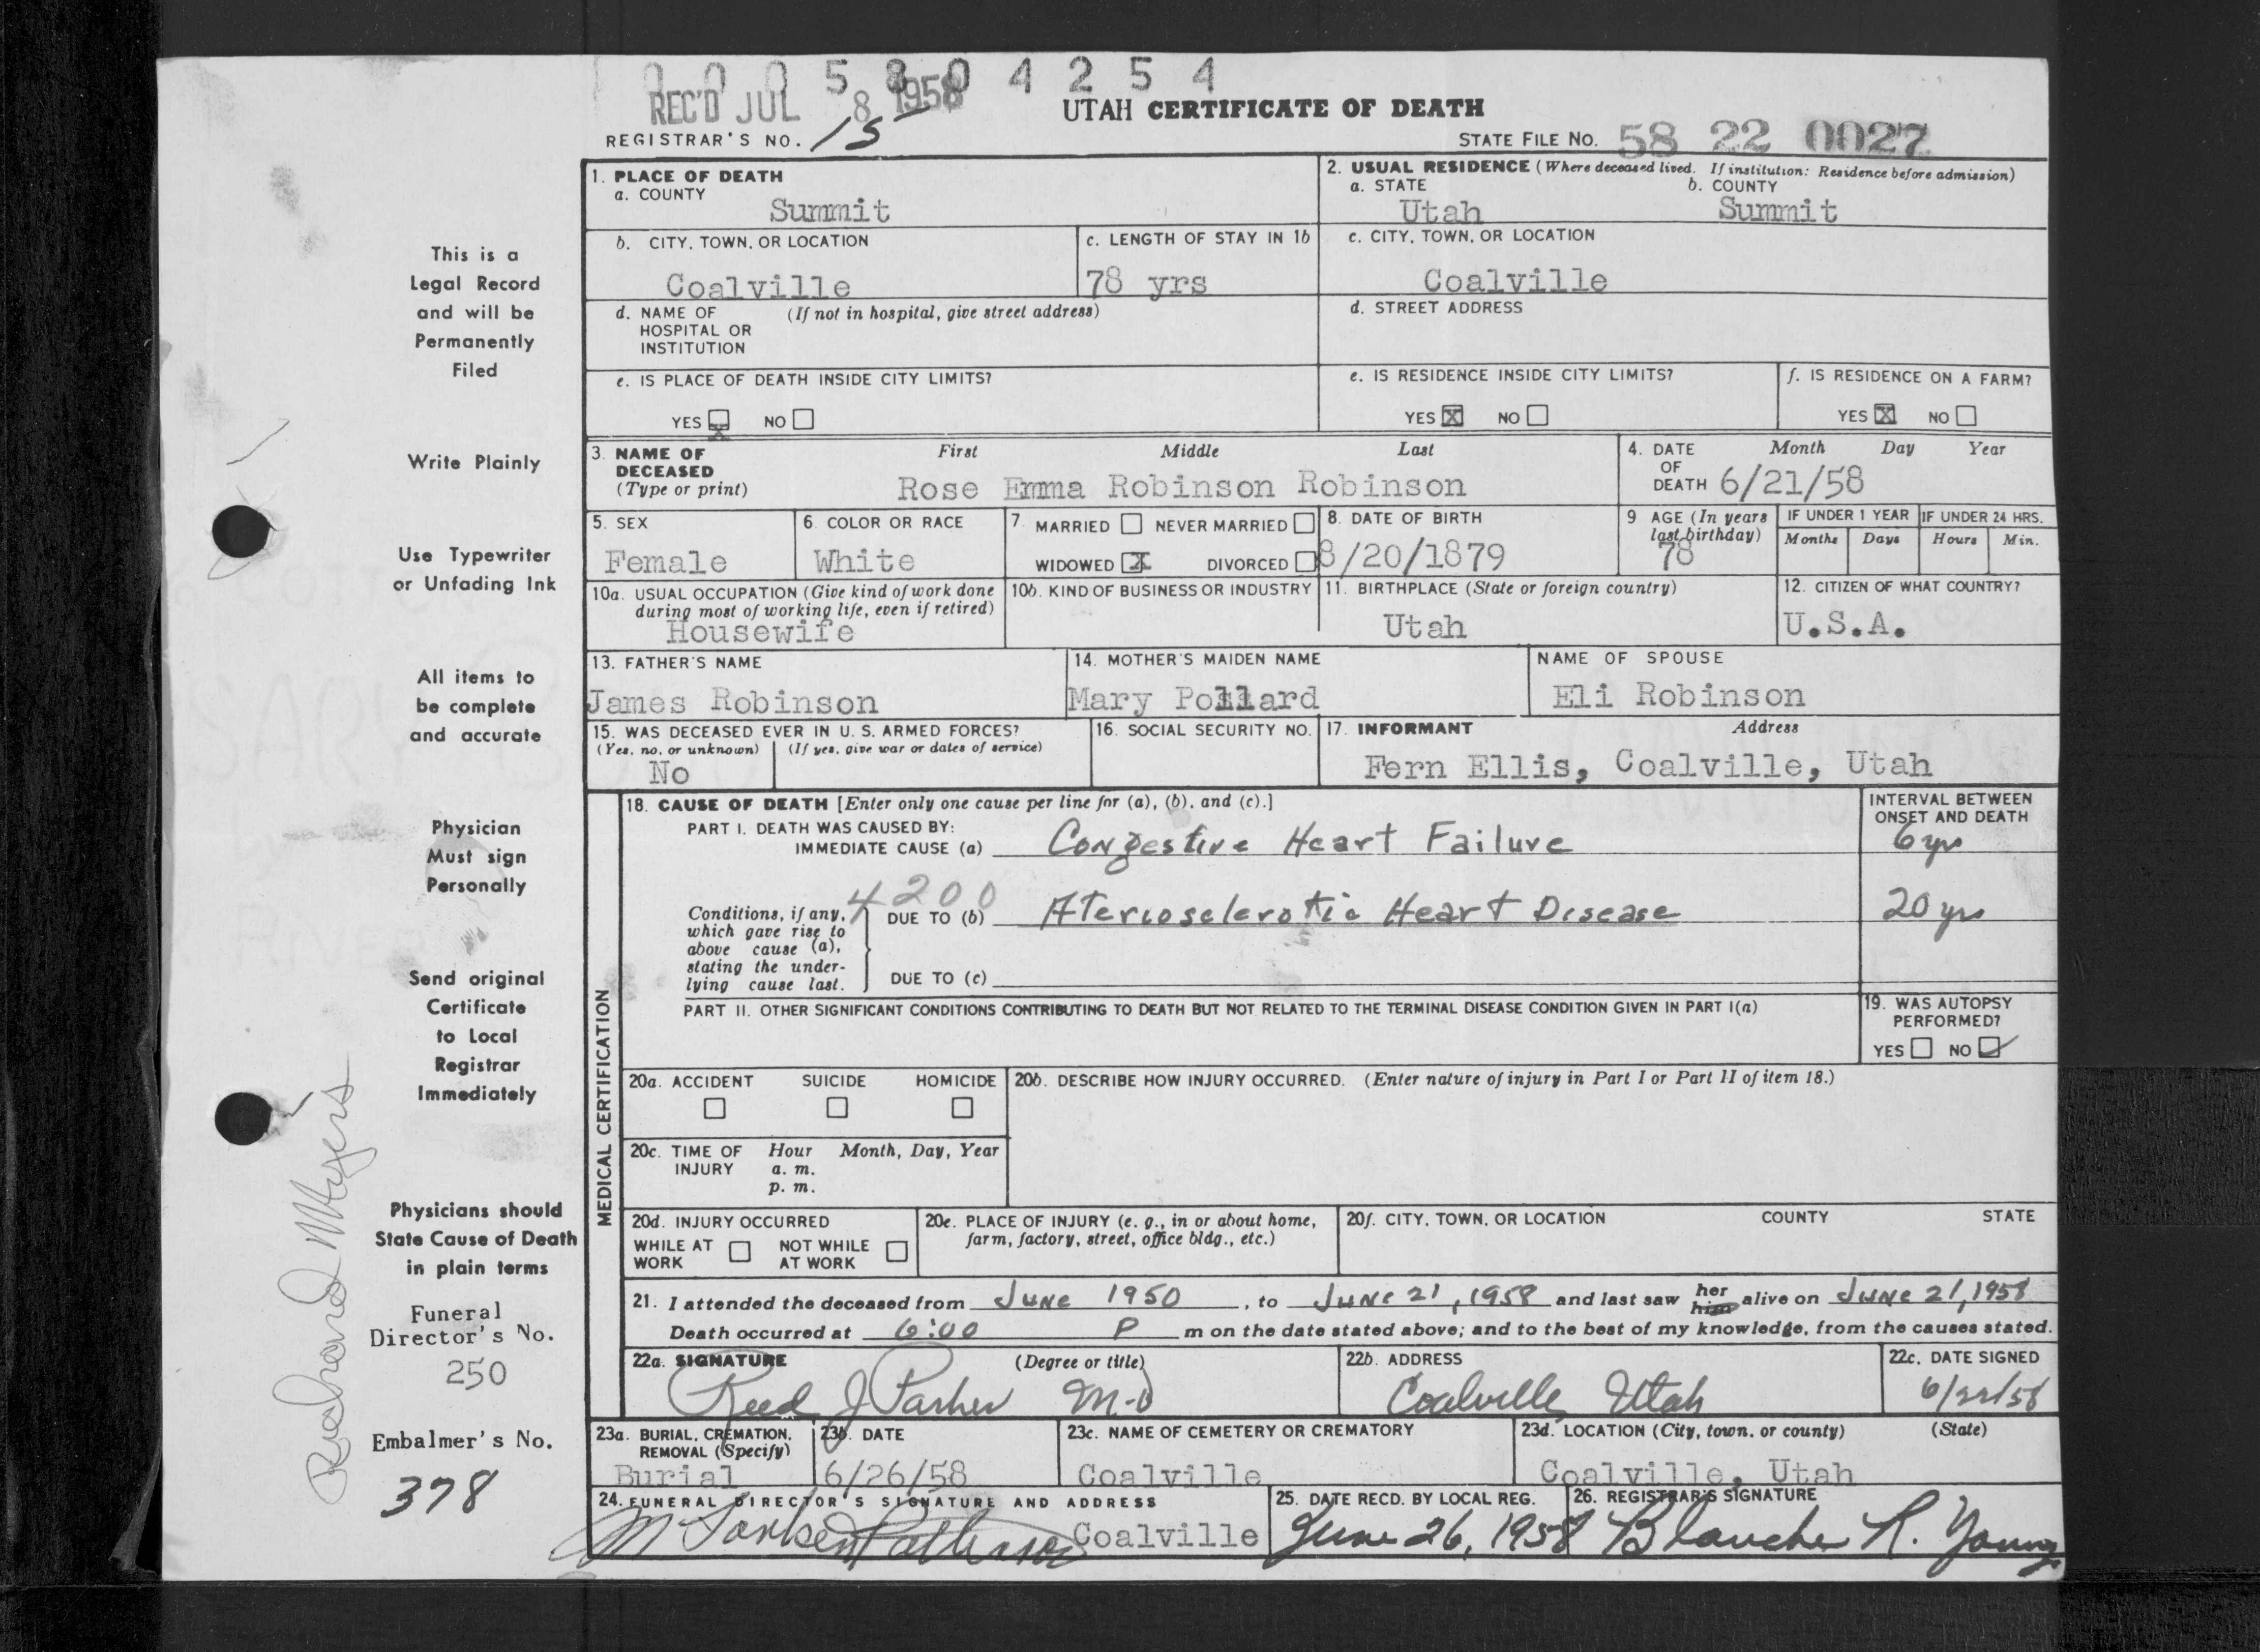 0 0 0 5 8 0 4 2 5 4
REC'D JUL 8 1958
UTAH CERTIFICATE OF DEATH
REGISTRAR'S NO. 15
STATE FILE NO. 58 22 0027
1. PLACE OF DEATH
a. COUNTY
Summit
2. USUAL RESIDENCE (Where deceased lived. If institution: Residence before admission)
a. STATE b. COUNTY
Utah Summit
b. CITY, TOWN, OR LOCATION
Coalville
c. LENGTH OF STAY IN 1b
78 yrs
c. CITY, TOWN, OR LOCATION
Coalville
d. NAME OF (If not in hospital, give street address)
HOSPITAL OR
INSTITUTION
d. STREET ADDRESS
e. IS PLACE OF DEATH INSIDE CITY LIMITS?
YES X NO
e. IS RESIDENCE INSIDE CITY LIMITS?
YES X NO
f. IS RESIDENCE ON A FARM?
YES X NO
3. NAME OF DECEASED
(Type or print)
First Middle Last
Rose Emma Robinson Robinson
4. DATE OF DEATH
Month Day Year
6/21/58
5. SEX
Female
6. COLOR OR RACE
White
7. MARRIED NEVER MARRIED
WIDOWED X DIVORCED
8. DATE OF BIRTH
8/20/1879
9 AGE (In years
last birthday)
78
IF UNDER 1 YEAR
Months Days
IF UNDER 24 HRS.
Hours Min.
10a. USUAL OCCUPATION (Give kind of work done
during most of working life, even if retired)
Housewife
10b. KIND OF BUSINESS OR INDUSTRY
11. BIRTHPLACE (State or foreign country)
Utah
12. CITIZEN OF WHAT COUNTRY?
U.S.A.
13. FATHER'S NAME
James Robinson
14. MOTHER'S MAIDEN NAME
Mary Pollard
NAME OF SPOUSE
Eli Robinson
15. WAS DECEASED EVER IN U. S. ARMED FORCES?
(Yes, no, or unknown) (If yes, give war or dates of service)
No
16. SOCIAL SECURITY NO.
17. INFORMANT Address
Fern Ellis, Coalville, Utah
MEDICAL CERTIFICATION
18. CAUSE OF DEATH [Enter only one cause per line for (a), (b), and (c).]
INTERVAL BETWEEN
ONSET AND DEATH
PART I. DEATH WAS CAUSED BY:
IMMEDIATE CAUSE (a) Congestive Heart Failure 6 yrs
4200
Conditions, if any,
which gave rise to
above cause (a),
stating the under-
lying cause last.
DUE TO (b) Aterioselerotic Heart Disease 20 yrs
DUE TO (c)
PART II. OTHER SIGNIFICANT CONDITIONS CONTRIBUTING TO DEATH BUT NOT RELATED TO THE TERMINAL DISEASE CONDITION GIVEN IN PART I(a)
19. WAS AUTOPSY
PERFORMED?
YES NO ✓
20a. ACCIDENT SUICIDE HOMICIDE
20b. DESCRIBE HOW INJURY OCCURRED. (Enter nature of injury in Part I or Part II of item 18.)
20c. TIME OF INJURY
Hour Month, Day, Year
a. m.
p. m.
20d. INJURY OCCURRED
WHILE AT WORK NOT WHILE AT WORK
20e. PLACE OF INJURY (e. g., in or about home,
farm, factory, street, office bldg., etc.)
20f. CITY, TOWN, OR LOCATION COUNTY STATE
21. I attended the deceased from June 1950, to June 21, 1958 and last saw her him alive on June 21, 1958
Death occurred at 6:00 P m on the date stated above; and to the best of my knowledge, from the causes stated.
22a. SIGNATURE (Degree or title)
Reed J Parker M-D
22b. ADDRESS
Coalville Utah
22c. DATE SIGNED
6/22/58
23a. BURIAL, CREMATION,
REMOVAL (Specify)
Burial
23b. DATE
6/26/58
23c. NAME OF CEMETERY OR CREMATORY
Coalville
23d. LOCATION (City, town, or county) (State)
Coalville, Utah
24. FUNERAL DIRECTOR'S SIGNATURE AND ADDRESS
Coalville
25. DATE RECD. BY LOCAL REG.
June 26, 1958
26. REGISTRAR'S SIGNATURE
Blanche R. Young
This is a
Legal Record
and will be
Permanently
Filed
Write Plainly
Use Typewriter
or Unfading Ink
All items to
be complete
and accurate
Physician
Must sign
Personally
Send original
Certificate
to Local
Registrar
Immediately
Physicians should
State Cause of Death
in plain terms
Funeral
Director's No.
250
Embalmer's No.
378
Richard Myers